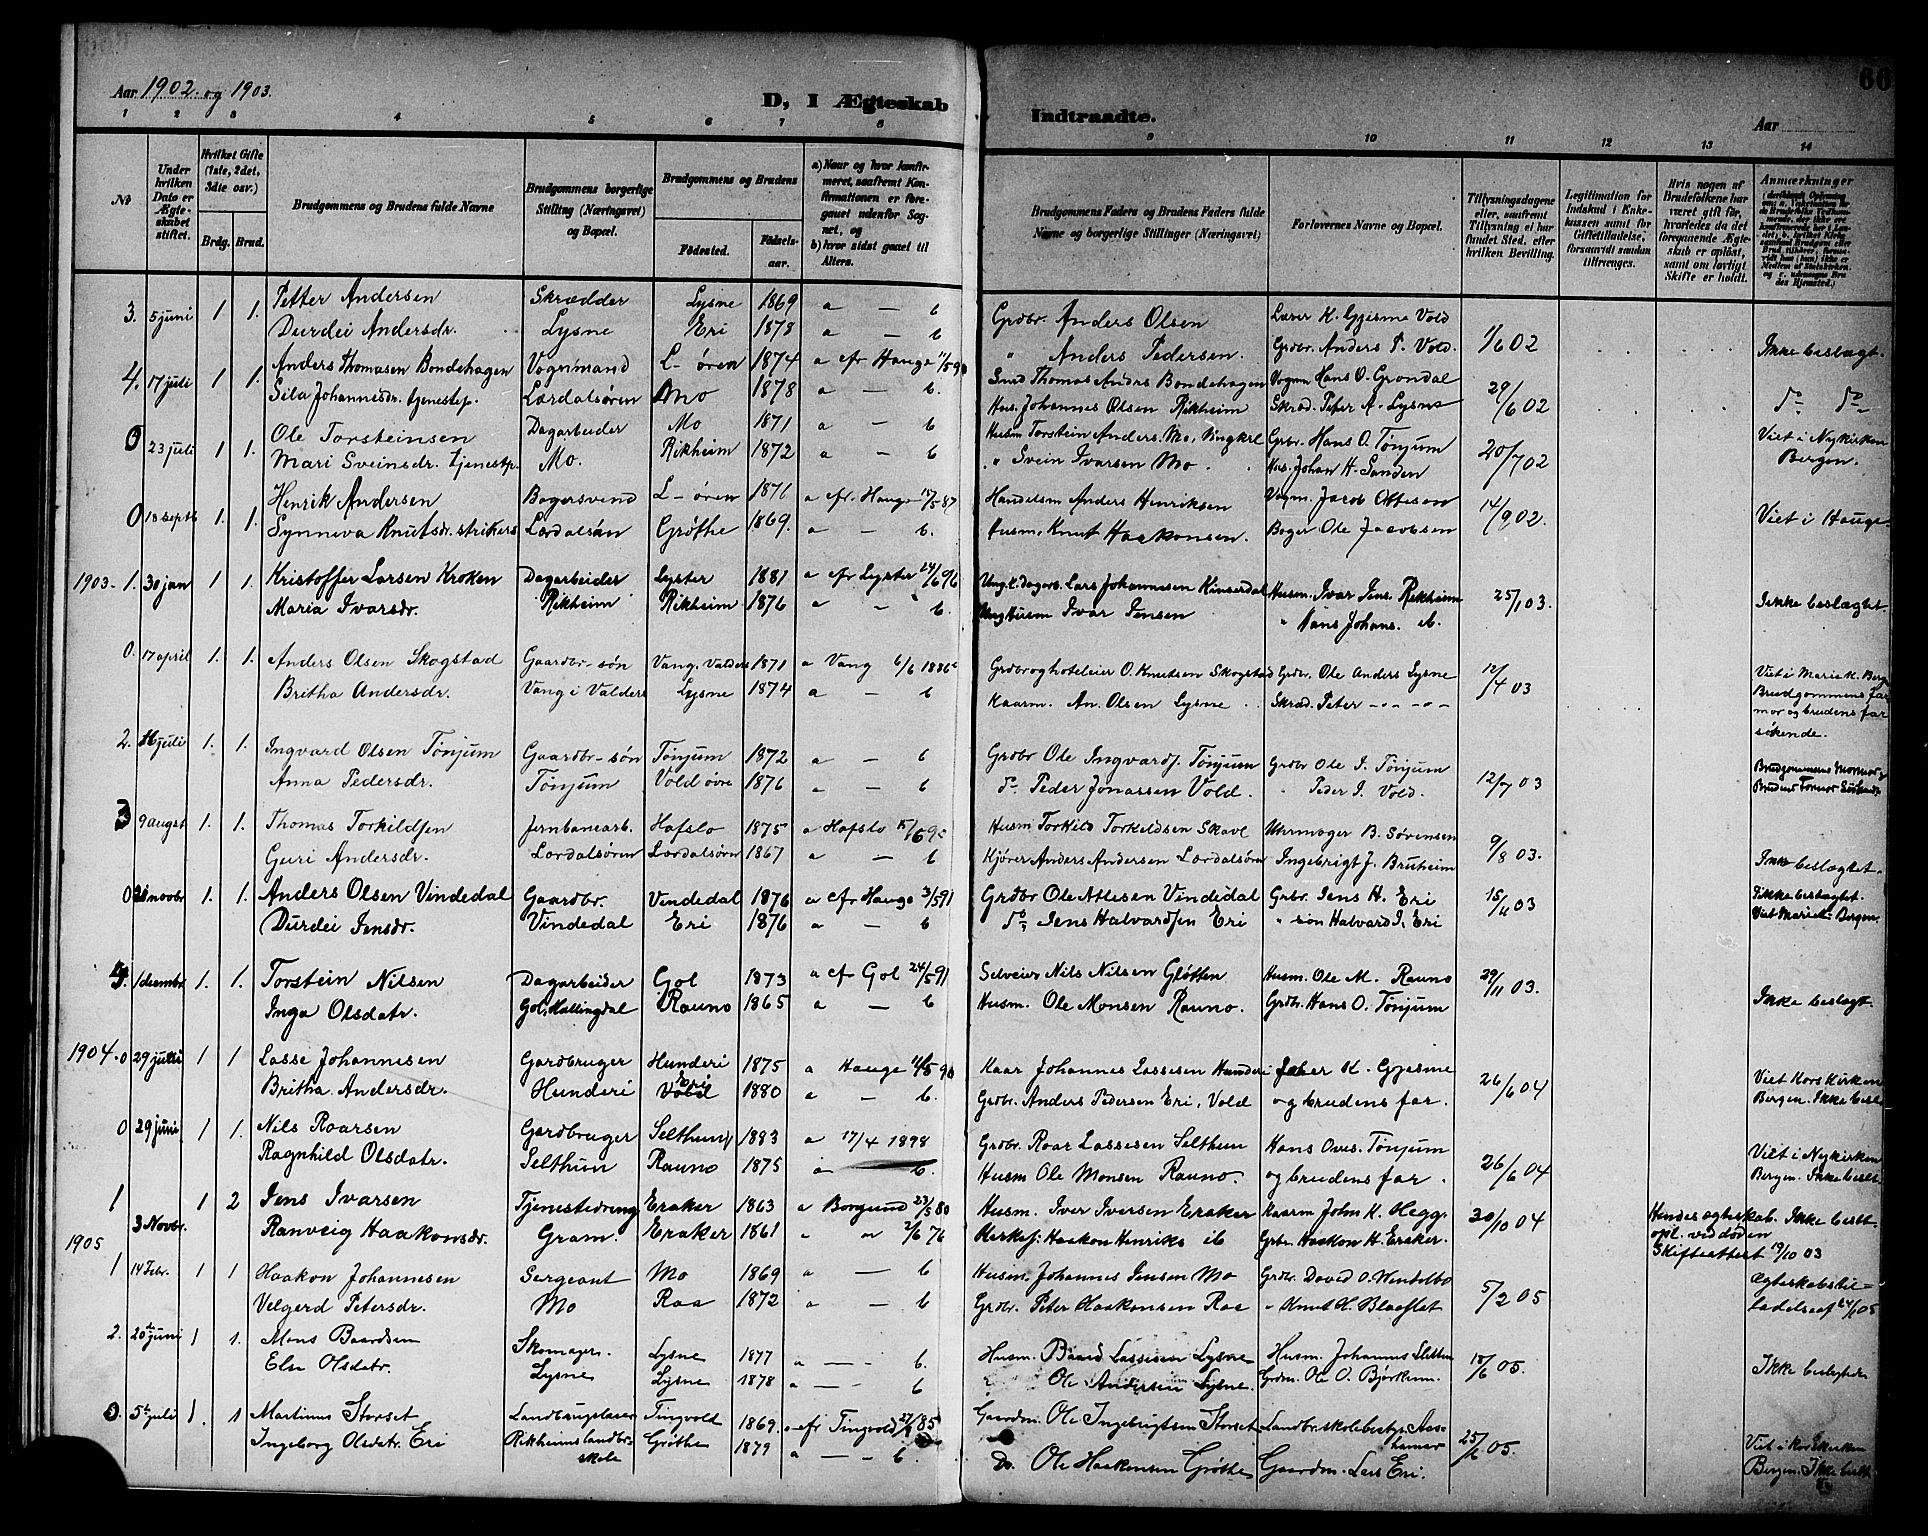 Aar 1902. og 1903.
D, I Ægteskab
Indtraadte.
Aar
66
1 2 3 4 5 6 7 8 9 10 11 12 13 14
No
Under hvilken Dato er Ægteskabet stiftet.
Hvilket Gifte (1ste, 2det, 3die osv.)
Brdg. Brud.
Brudgommens og Brudens fulde Navne
Brudgommens borgerlige Stilling (Næringsvei) og Bopæl.
Brudgommens og Brudens
Fødested. Fødselsaar.
a) Naar og hvor konfirmeret, saafremt Konfirmationen er foregaaet udenfor Sognet, og
b) hvor sidst gaaet til Alters.
Brudgommens Faders og Brudens Faders fulde Navne og borgerlige Stillinger (Næringsvei)
Forlovernes Navne og Bopæl.
Tillysningsdagene eller, saafremt Tillysning ei har fundet Sted, efter hvilken Bevilling.
Legitimation for Indskud i Enkekassen samt for Giftetilladelse, forsaavidt saadan tiltrænges.
Hvis nogen af Brudefolkene har været gift før, hvorledes da det foregaaende Ægteskab er opløst, samt om lovligt Skifte er holdt.
Anmærkninger
3. 5 juni 1 1. Petter Andersen Skrædder Lysne 1869 a — b Grdbr. Anders Olsen Lærer K. Gjesme Vold 1/6 02
Durdei Andersdr. Lysne Eri 1878 a — b " Anders Pedersen. Grdbr. Anders P. Vold. Ikke beslægt.
4. 17 juli 1 1. Anders Thomasen Bondehagen Vognmand L- øren 1874 a cfr Hauge Smed Thomas Andrs Bondehagen Vogm Hans O. Grøndal 29/6 02
Sila Johannesdr. tjenestep. Lærdalsøren Mo 1878 a — b. Hus. Johannes Olsen Rikheim Skræd. Peter A. Lysne do do
0 23 juli 1 1. Ole Torsteinsen Dagarbeider Mo 1871 a — b Husm Torstein Anders. Mo, Ungkrl Grbr. Hans O. Tønjum 20/7 02 Viet i Nykirken
Mari Sveinsdr. tjenestp. Mo. Rikheim 1872 a — b " Svein Ivarsen Mo. Hus. Johan H. Sanden Bergen.
0 18 septb 1. 1. Henrik Andersen Bagersvend L- øren 1871 a cfr. Hauge Handelsm Anders Henriksen Vogm. Jacob Ottesen 14/9 02.
Synneva Knutsdr. strikers Lærdalsøn Grøthe 1869. a — b. Husm. Knut Haakonsen. Bager Ole Jacobsen Viet i Hauge
1903- 1. 30 jan 1 1. Kristoffer Larsen Kroken Dagarbeider Lyster 1881 a cfr Lyster 24/6 96 Ung.k. Dagarb. Lars Johannesen Kinserdal Husm. Ivar Jens. Rikheim 25/1 03.
Maria Ivarsdr. Rikheim Rikheim 1876 a — b. Ung Husm Ivar Jensen " Hans Johans. ib. Ikke beslægtet
0. 17 april 1. 1. Anders Olsen Skogstad Gaardbr- søn Vang. Valders 1871 a Vang 6/6 1886 Grdbr og hoteleier O. Knutsen Skogstad Grdbr. Ole Anders Lysne 12/4 03 Viet i Marie k. Berg
Britha Andersdr. Vang i Valders Lysne 1874 a — b Kaarm. An. Olsen Lysne Skræd. Peter - - - - Brudgommens far
mor og brudens far
søkende.
2. juli 1. 1. Ingvard Olsen Tønjum Gaardbr- søn Tønjum 1872 a b Grdbr Ole Ingvardj. Tønjum Grdbr Ole I. Tønjum 12/7 03 Brudgommens Mormor og
Anna Pedersdr. Tønjum Vold øvre 1876 a — b do Peder Jonassen Vold. " Peder I. Vold. Brudens Farmor Søskende
3 9 augst 1. 1. Thomas Torkildsen Jernbanearb. Hafslo 1875 a Hafslo Husm Torkild Torkildsen Skavl Uhrmager B. Sørensen 9/8 03.
Guri Andersdr. Lærdalsøren Lærdalsøren 1867 a — b Kjører Anders Andersen Lærdalsøren Ingebrigt J. Bruheim Ikke beslægtet.
0 novbr 1. 1. Anders Olsen Vindedal Gaardbr. Vindedal 1876 a cfr Hauge 3/5 91 Grdbr Ole Attesen Vindedal Grbr. Jens H. Eri 15/11 03 Ikke beslægtet.
Durdei Jensdr. Vindedal Eri 1876 a — b do Jens Halvardsen Eri " søn Halvard J. Eri Viet Mariek. Bergen.
4. 1 decembr 1. 1. Torstein Nilsen Dagarbeider Gol 1873 a cfr Gol 24/5 91 Selveier Nils Nilsen Gløtten Husm. Ole M. Rauno 29/11 03.
Inga Olsdatr. Gol, Hallingdal Rauno 1865 a — b Husm. Ole Monsen Rauno. Grdbr. Hans O. Tønjum Ikke beslægt.
1904. 0 29 juni 1 1 Lasse Johannesen Gardbruger Hunderi 1875 a Hauge Kaar Johannes Lassesen Hunderi Lærer K. Gjesme 26/6 04 Viet Korskirken
Britha Andersdr. Hunderi Eri Vold 1880 a — b. Grdbr. Anders Pedersen Eri, Vold og brudens far. Bergen. Ikke besl
0 29 juni 1 1. Nils Roarsen Gardbruger Selthun 1883 a 17/4 1898 Grdbr. Roar Lassesen Selthun Hans Ovis. Tønjum 26/6 04 Viet i Nykirken
Ragnhild Olsdatr. Selthun Rauno 1875 a — b. Husm Ole Monsen Rauno. og brudens far. Bergen. Ikke besl
1 3 Novbr. 1 2 Jens Ivarsen Tjenestedreng Eraker 1863 a Borgund 23/5 80 Husm. Iver Iversen Eraker Kaarm John K. Hegg. 30/10 04 Hendes ægteskab Ikke besl.
Ranveig Haakonsdr. Gram. Eraker 1861 a " 2/6 76 Haakon Henriks ib Grbr. Haakon H. Eraker. opl. ved døden
Skifteattest 19/10 03
1905
1 14 Febr. 1 1 Haakon Johannesen Sergeant Mo 1869 a — b Husm. Johannes Jensen Mo Grdbr. David O. Wendelbo 5/2 05 Ægteskabstil-
Velgerd Petersdr. Mo Raa 1872 a — b Grdbr. Peter Haakonsen Raa " Knut H. Blaaflat ladelse af 24/1 05
2. 20de juni 1 1. Mons Baardsen Skomager. Lysne 1877 a — b. Husm. Baard Lassesen Lysne Husm. Johannes Sletten 18/6 05.
Else Olsdatr. Lysne Lysne 1878 a — b " Ole Andersen Lysne Grdm. Ole O. Bjørkum. Ikke beslegtede
0. 5te juli 1. 1 Martinus Storset Landbrugslærer Tingvold 1869. a cfr Tingvold Gaardm. Ole Ingebrigtsen Storset Landbr.skolebestyr. Aas- 25/6 05.
Ingeborg Olsdatr. Eri Rikheims landbr. Grøthe 1879 a — b. Do. Ole Haakonsen Grøthe Gaardm. Lars Eri. Viet i Korskirken
skole hamar Bergen. Ikke besl.